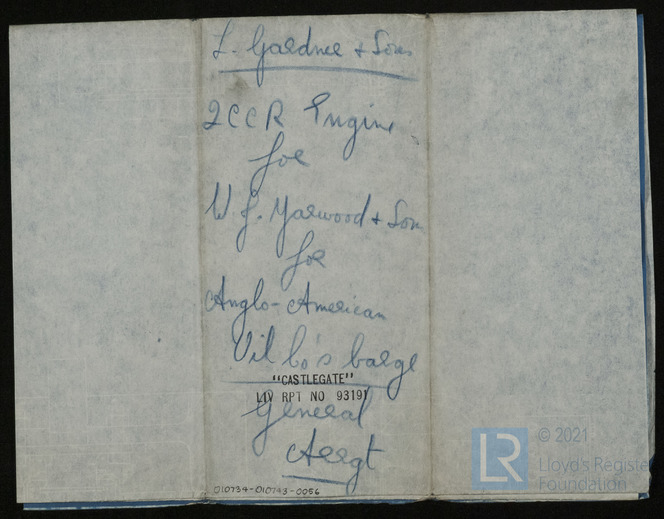 L. Gardner & Sons
2CCR Engine
for
W. J. Yarwood & Sons
for
Anglo-American
Oil Co's barge
"CASTLEGATE"
LIV RPT NO 93191
General
Arrgt
010734-010743-0056
LR
© 2021
Lloyd's Register
Foundation